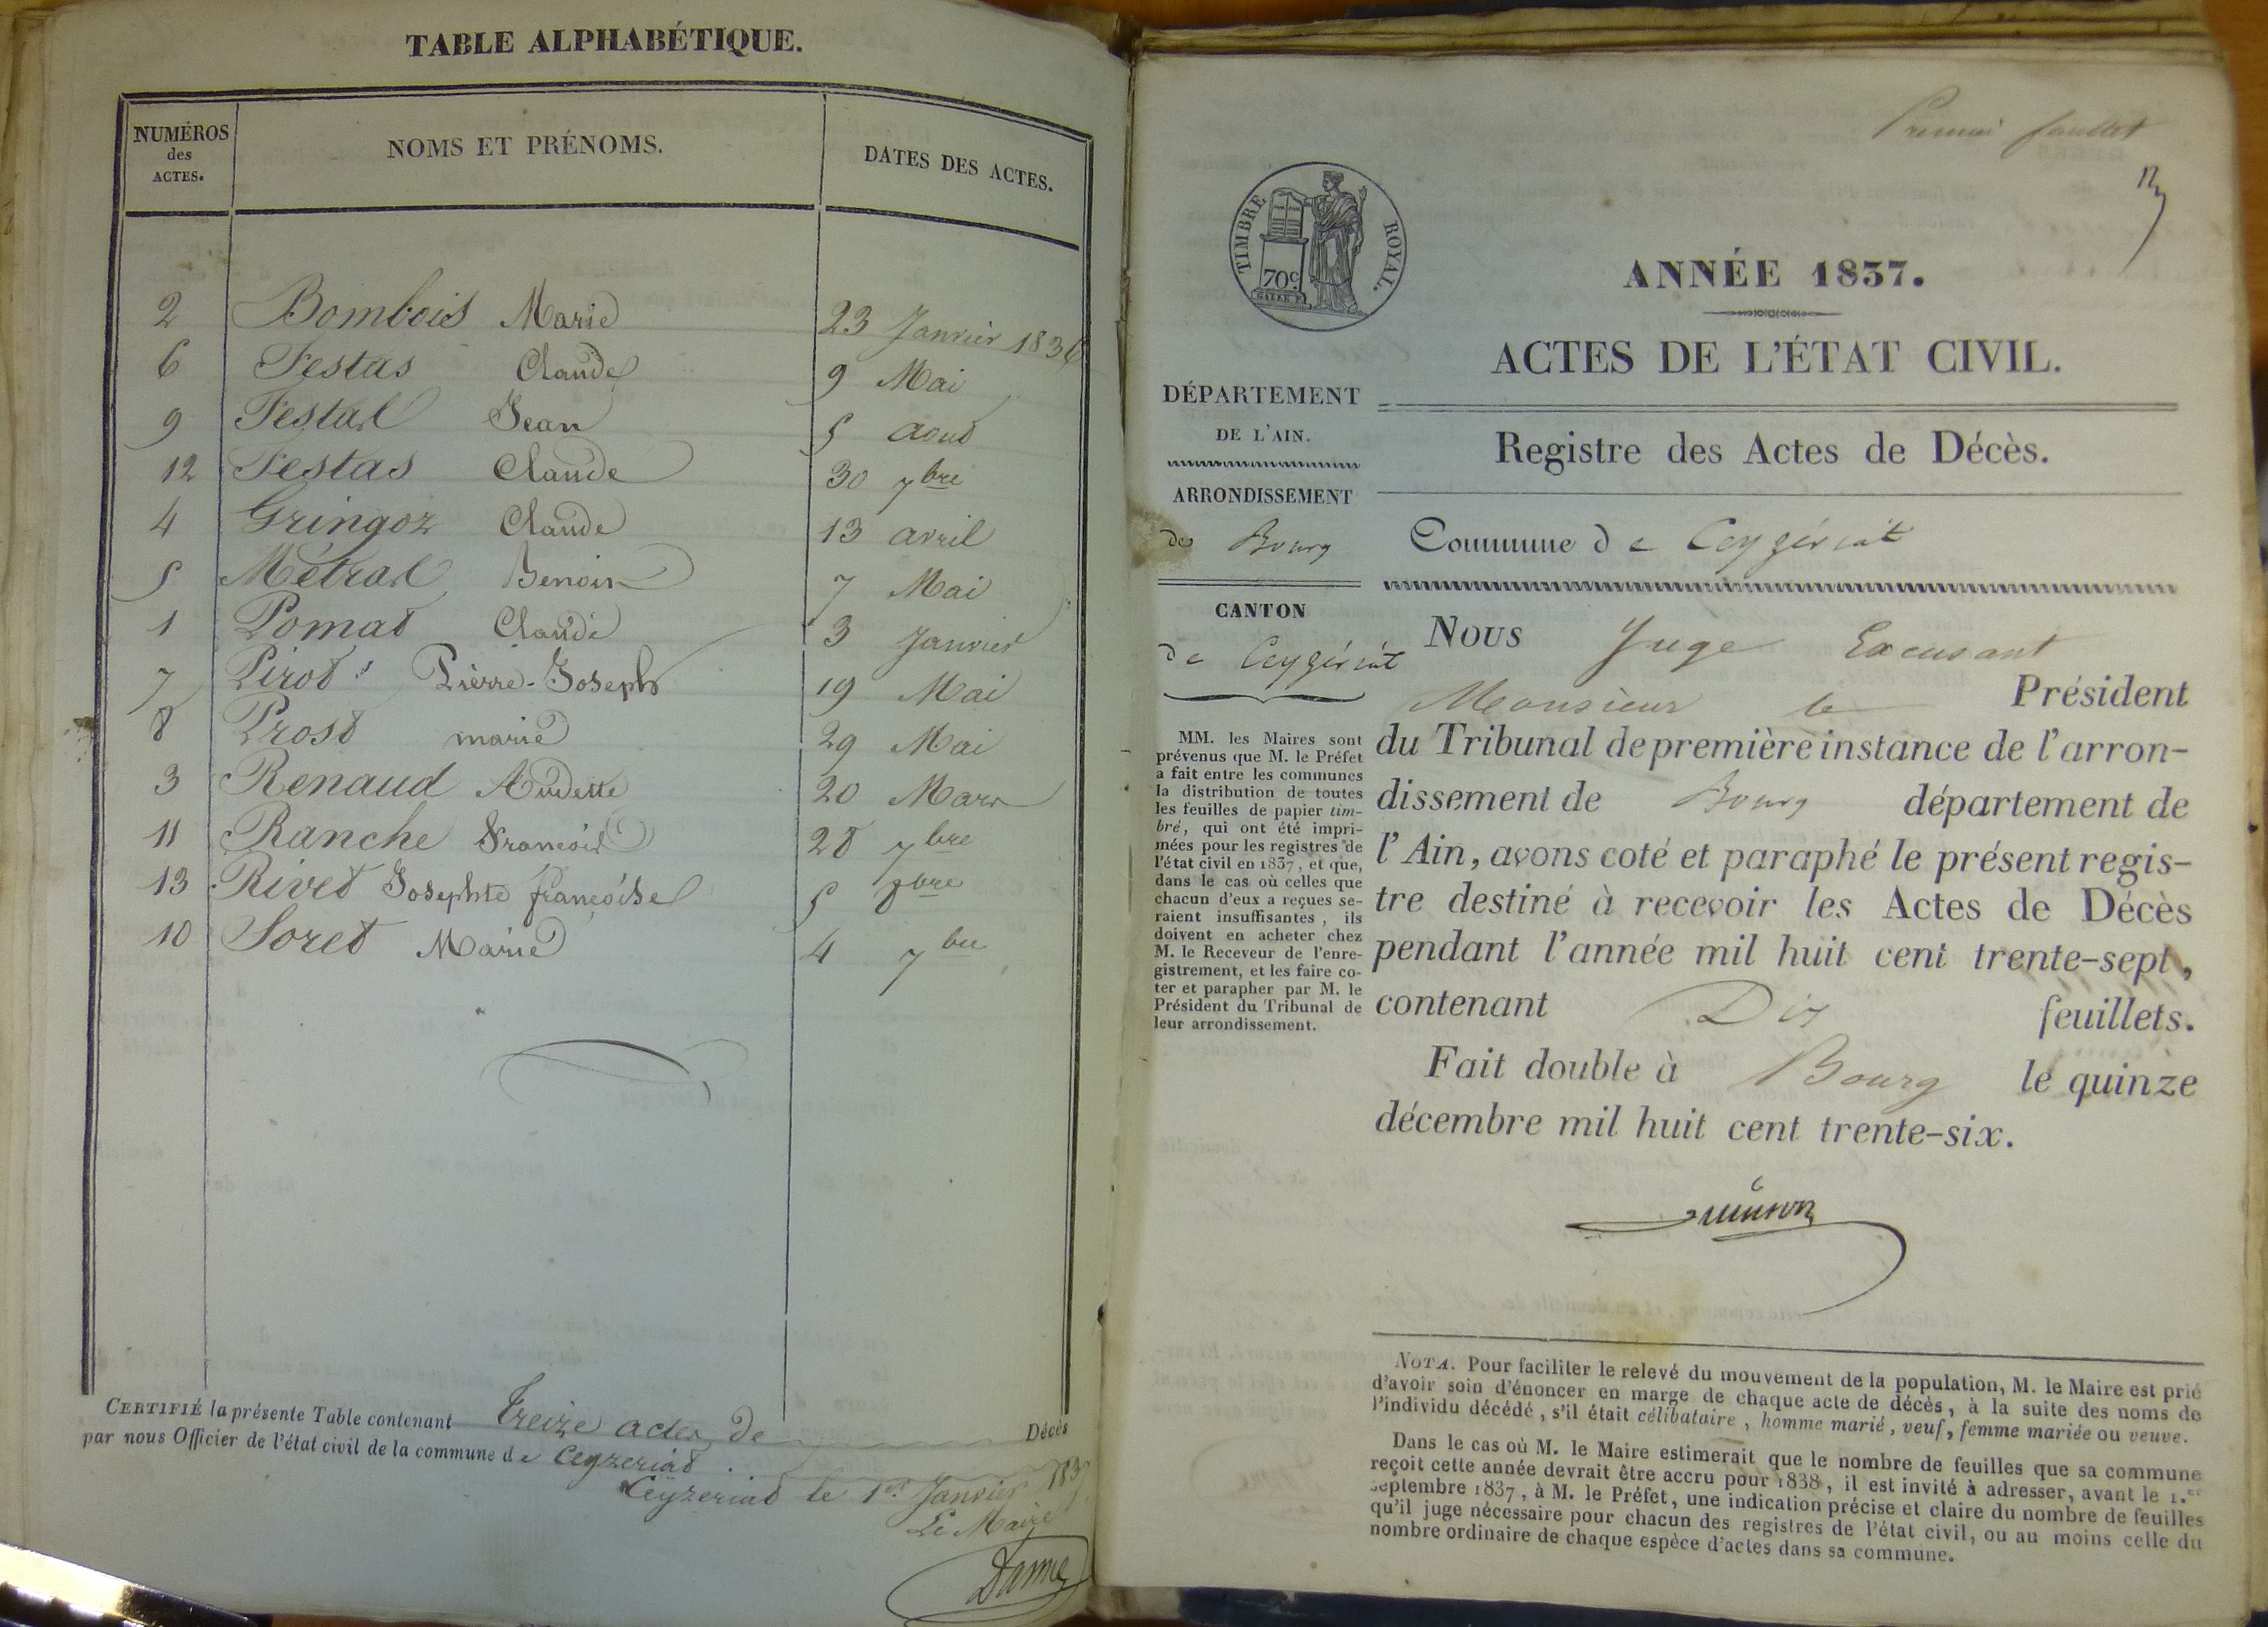 TABLE ALPHABÉTIQUE.
NUMÉROS des ACTES.
NOMS ET PRÉNOMS.
DATES DES ACTES.
2 Bombois Marie 23 Janvier 1836
6 Festas Claude 9 Mai
9 Festas Jean 5 aout
12 Festas Claude 30 7bre
4 Gringoz Claude 13 avril
5 Métral Benoit 7 Mai
1 Pomat Claude 3 Janvier
7 Pirod Pierre-Joseph 19 Mai
8 Prost marie 29 Mai
3 Renaud Audette 20 Mars
11 Ranche François 28 7bre
13 Rivet Josephte françoise 5 8bre
10 Soret Marie 4 7bre
CERTIFIÉ la présente Table contenant Treize actes de Décès
par nous Officier de l'état civil de la commune de Ceyzeriat.
Ceyzeriat le 1er Janvier 1837
Le Maire
Premier feuillet
TIMBRE ROYAL.
70c
ANNÉE 1837.
ACTES DE L'ÉTAT CIVIL.
Registre des Actes de Décès.
Commune de Ceyzériat
DÉPARTEMENT
DE L'AIN.
ARRONDISSEMENT
de Bourg
CANTON
de Ceyzériat
MM. les Maires sont
prévenus que M. le Préfet
a fait entre les communes
la distribution de toutes
les feuilles de papier tim-
bré, qui ont été impri-
mées pour les registres de
l'état civil en 1837, et que,
dans le cas où celles que
chacun d'eux a reçues se-
raient insuffisantes, ils
doivent en acheter chez
M. le Receveur de l'enre-
gistrement, et les faire co-
ter et parapher par M. le
Président du Tribunal de
leur arrondissement.
NOUS Juge Excusant
Monsieur le Président
du Tribunal de première instance de l'arron-
dissement de Bourg département de
l'Ain, avons coté et paraphé le présent regis-
tre destiné à recevoir les Actes de Décès
pendant l'année mil huit cent trente-sept,
contenant Dix feuillets.
Fait double à Bourg le quinze
décembre mil huit cent trente-six.
NOTA. Pour faciliter le relevé du mouvement de la population, M. le Maire est prié
d'avoir soin d'énoncer en marge de chaque acte de décès, à la suite des noms de
l'individu décédé, s'il était célibataire, homme marié, veuf, femme mariée ou veuve.
Dans le cas où M. le Maire estimerait que le nombre de feuilles que sa commune
reçoit cette année devrait être accru pour 1838, il est invité à adresser, avant le 1.er
septembre 1837, à M. le Préfet, une indication précise et claire du nombre de feuilles
qu'il juge nécessaire pour chacun des registres de l'état civil, ou au moins celle du
nombre ordinaire de chaque espèce d'actes dans sa commune.